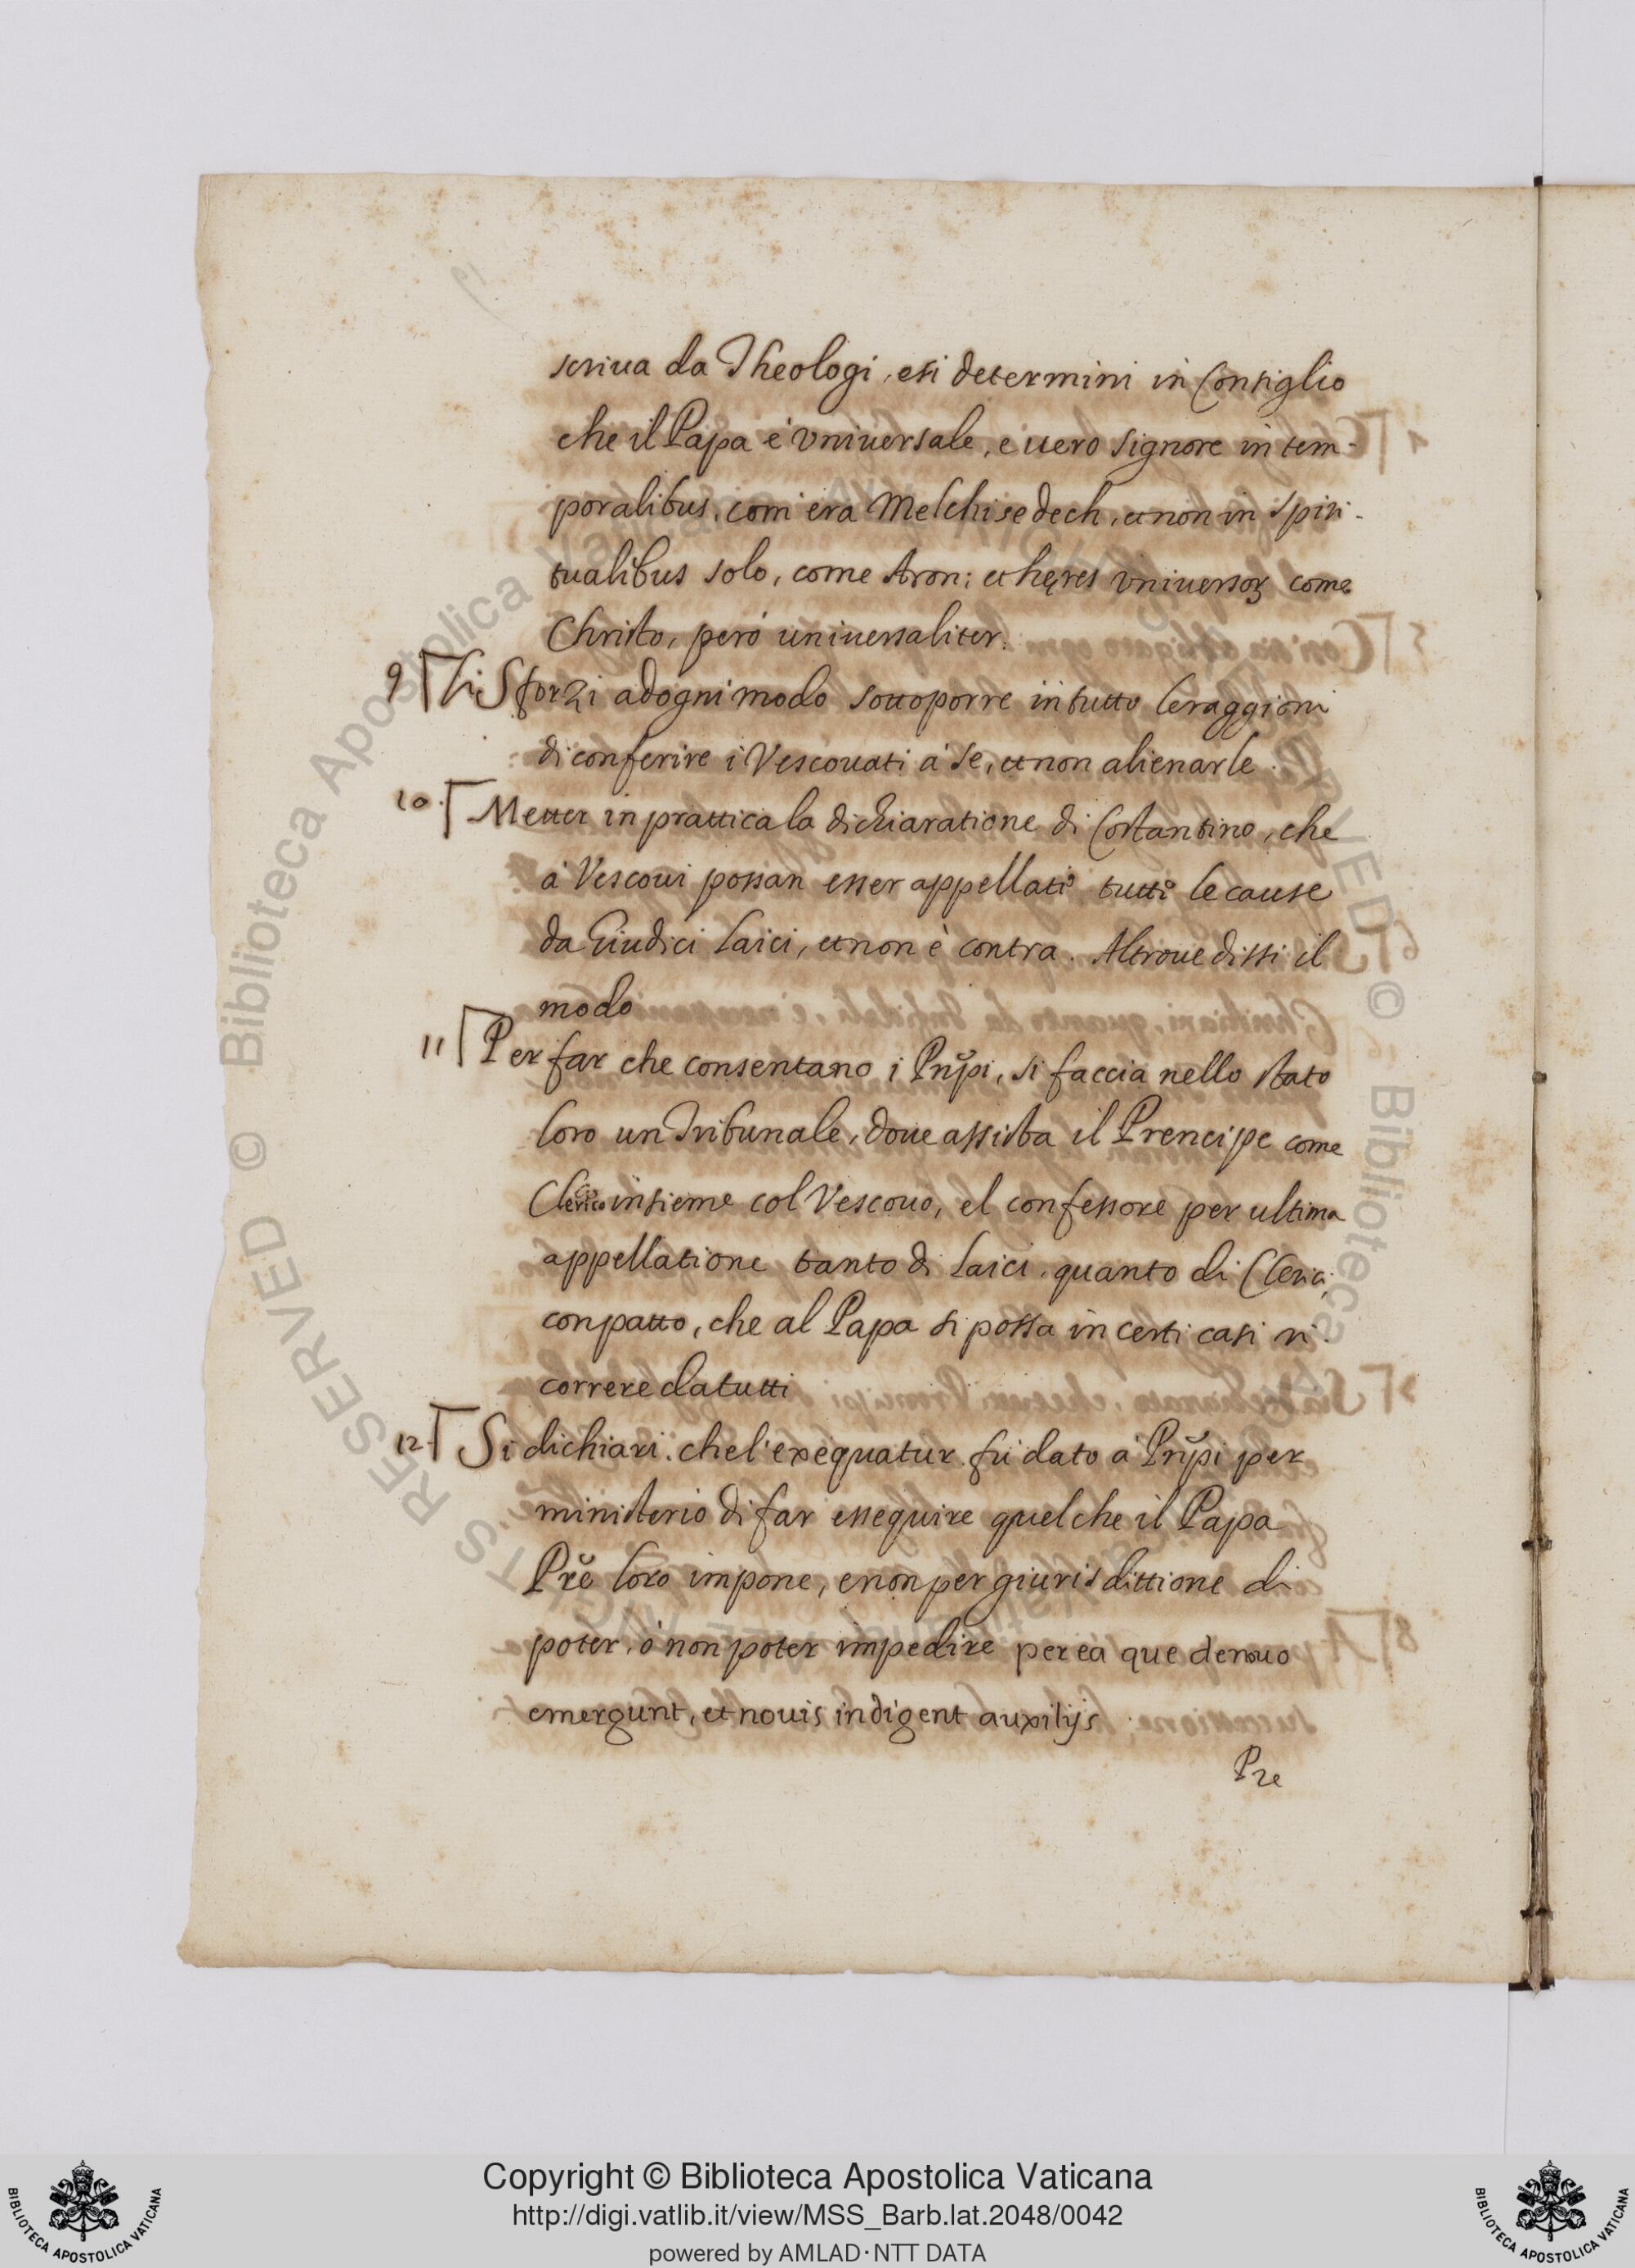 scriua da Theologi, e si determini in Consiglio
che il Papa è Vniuersale, e uero Signore in tem-
poralibus, com' era Melchisedech, et non in spiri-
tualibus solo, come Aron; et hęres vniuersoꝝ come
Christo, però uniuersaliter.
9 Si Sforzi ad ogni modo sottoporre in tutto le raggioni
di conferire i Vescouati à se, et non alienarle.
10. Metter in prattica la dichiaratione di Costantino, che
à Vescoui possan esser appellati tutti le cause
da Giudici Laici, et non è contra. Altroue dissi il
modo
11 Per far che consentano i Prñpi, si faccia nello stato
loro un Tribunale, doue assista il Prencipe come
Clerico insieme col Vescouo, el confessore per ultima
appellatione tanto di Laici, quanto di Clerici,
con patto, che al Papa si possa in certi casi ri-
correre da tutti
12. Si dichiari, che l'exequatur fù dato à Prñpi per
ministerio di far essequire quel che il Papa
Prẽ loro impone, e non per giurisdittione di
poter, ò non poter impedire per ea que denuo
emergunt, et nouis indigent auxilijs.
Pre
Copyright © Biblioteca Apostolica Vaticana
http://digi.vatlib.it/view/MSS_Barb.lat.2048/0042
powered by AMLAD·NTT DATA
BIBLIOTECA APOSTOLICA VATICANA
BIBLIOTECA APOSTOLICA VATICANA